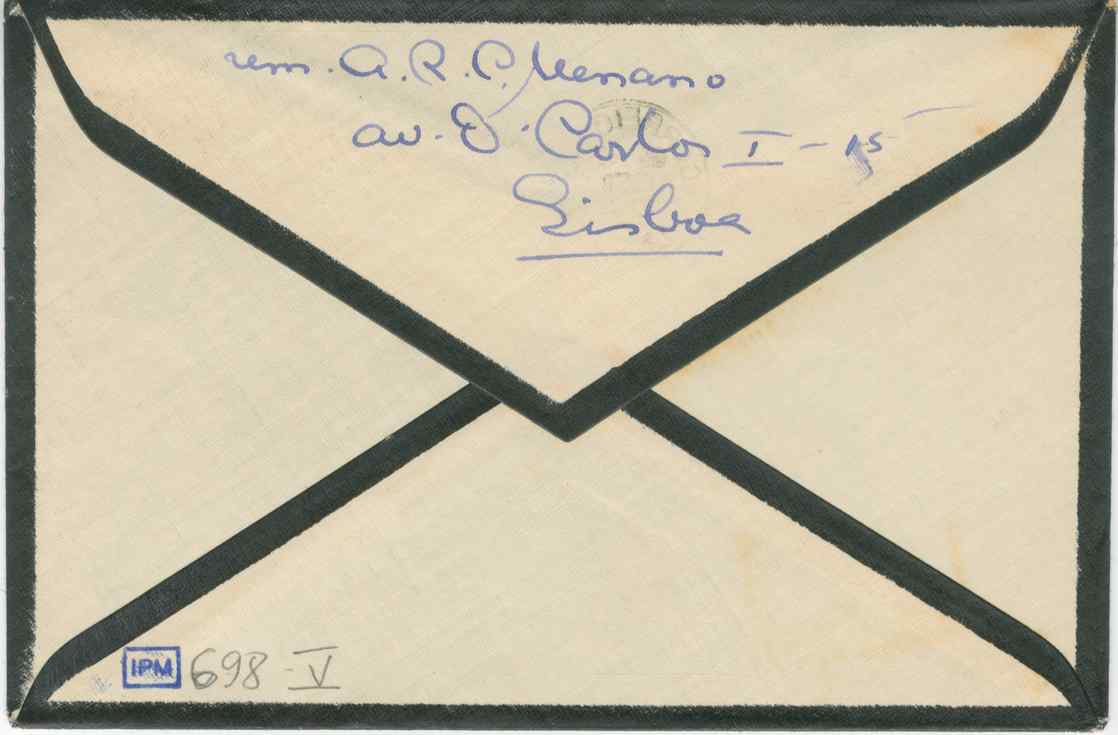 rem. A. R. C. Menano
av. D. Carlos I - 15
Lisboa
IPM 698-V